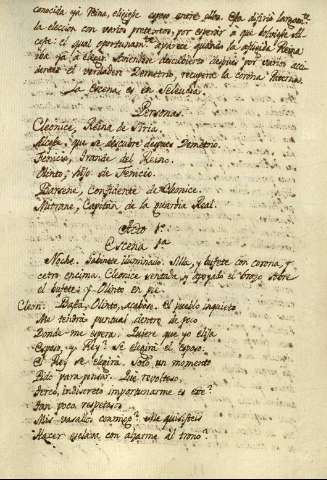 conocida ya Reina, elijiese esposo entre ellos. Esta difirió largamte.
la eleccion con varios pretextos, por esperar à que bolviese Al-
ceste: el qual oportunamte. aparece quando la afligida Reina
iva ya à elegir. Finalmente descubierto despues por varios acci-
dentes el verdadero Demetrio, recupera la corona Paterna.
La Escena es en Seleucia.
Personas.
Cleonice, Reina de Siria.
Alceste, que se descubre despues Demetrio.
Fenicio, Grande del Reino.
Olinto, hijo de Fenicio.
Barsene, Confidente de Cleonice.
Mitrane, Capitan de la guardia Real.
Acto 1º.
Escena 1ª
Noche. Gabinete iluminado. Silla, y bufete con corona, y
cetro encima. Cleonice sentada, y apoyado el brazo sobre
el bufete; y Olinto en pie.
Cleon. Basta, Olinto, acabòse. El pueblo inquieto
Me tendrà puntual dentro de poco
Donde me espera. Quiere que yo elija
Esposo, y Rey? Se elegirà el Esposo.
El Rey se elegirà. Solo un momento
Pido para pensar. Què revoltoso,
Terco, indiscreto importunarme es este?
Tan poco respetoso
Mis vasallo conmigo? Me quisisteis
Hacer esclava con alzarme al trono?